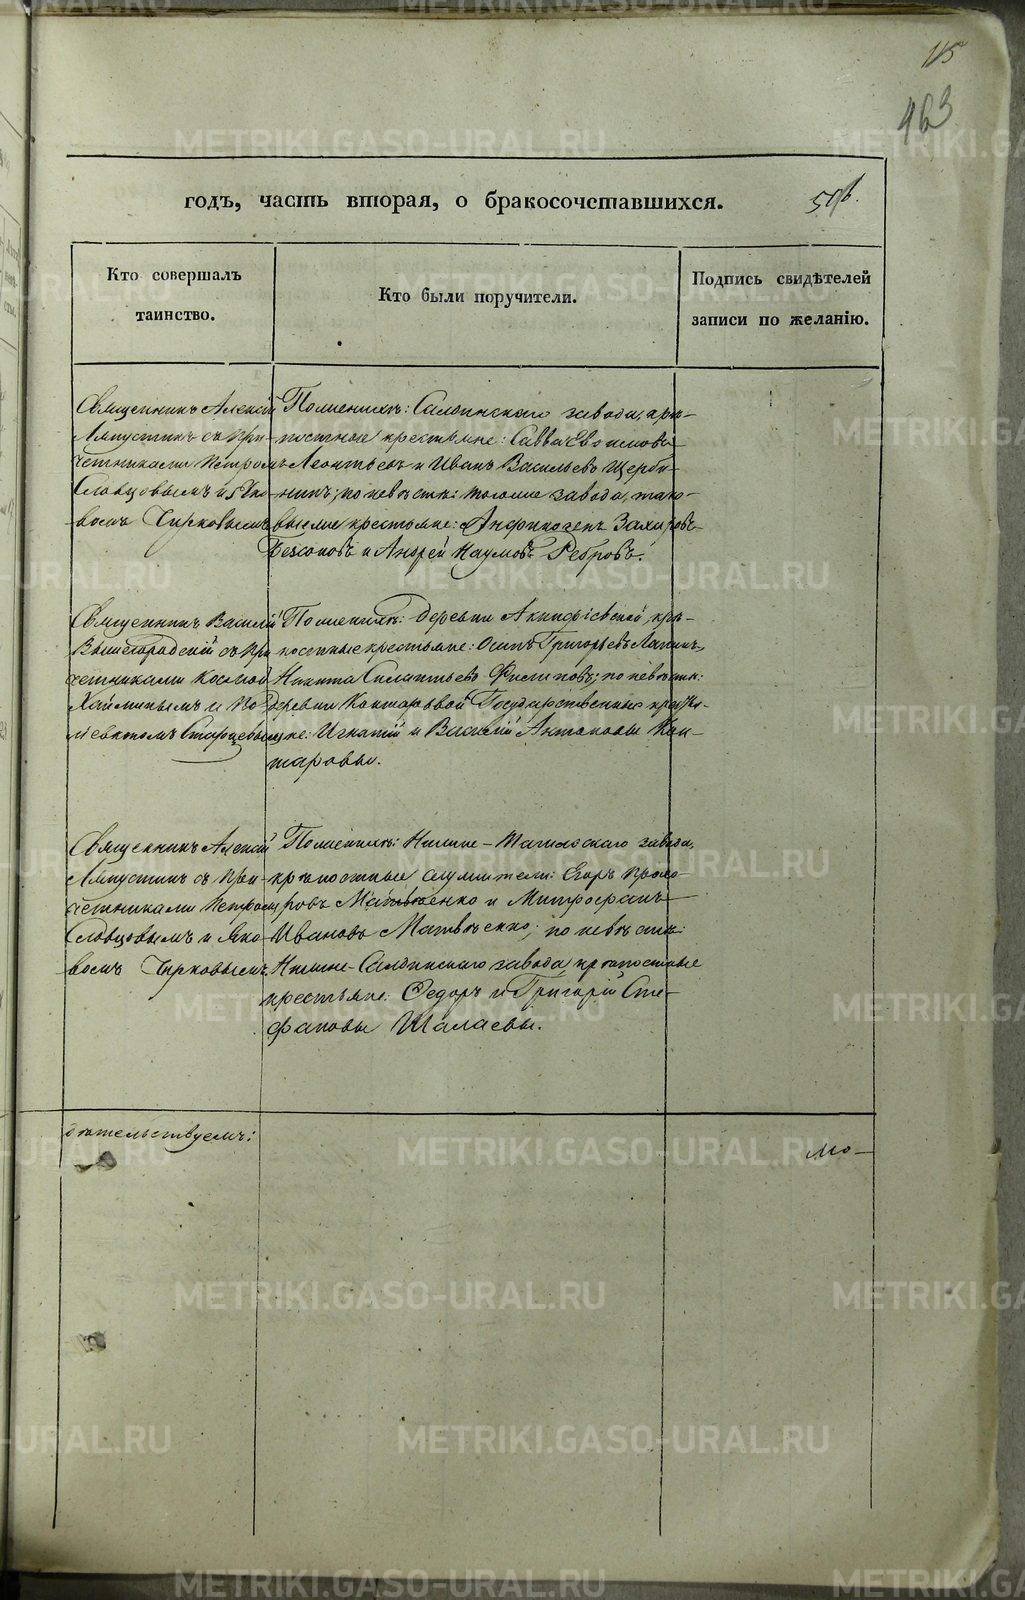 115
463
годъ, часть вторая, о бракосочетавшихся.
Кто совершалъ
таинство.
Кто были поручители.
Подпись свидѣтелей
записи по желанію.
Священникъ Алексій
Ляпустинъ съ при-
четниками Петромъ
Словцовымъ и Яко-
вомъ Чирковымъ
По женихѣ: Салдинскаго завода, крѣ-
постные крестьяне: Савва Евѳимовъ
Леонтьевъ и Иванъ Васильевъ Щерби-
нинъ; по невѣстѣ: тогоже завода, тако-
выеже крестьяне: Анфиногенъ Захаровъ
Безсоновъ и Андрей Наумовъ Ребровъ.
Священникъ Василій
Вышегородскій съ при
четниками Космой
Хайминымъ и По-
ліевктомъ Старцевымъ
По женихѣ: деревни Акинфіевской, крѣ-
постные крестьяне: Осипъ Григорьевъ Лапинъ,
Никита Силантьевъ Филиповъ; по невѣстѣ:
деревни Кантаровой Государственные крестья-
не: Игнатій и Василій Антоновы Кан-
таровы.
Священникъ Алексій
Ляпустинъ съ при-
четниками Петромъ
Словцовымъ и Яко-
вомъ Чирковымъ
По женихѣ: Нижне-Тагильскаго завода,
крѣпостные служители: Егоръ Прохо-
ровъ Матвѣенко и Митрофанъ
Ивановъ Матвѣенко; по невѣстѣ:
Нижне-Салдинскаго завода, крѣпостные
крестьяне: Ѳедоръ и Григорій Сте-
фановы Шалаевы.
дѣтельствуемъ:
METRIKI.GASO-URAL.RU